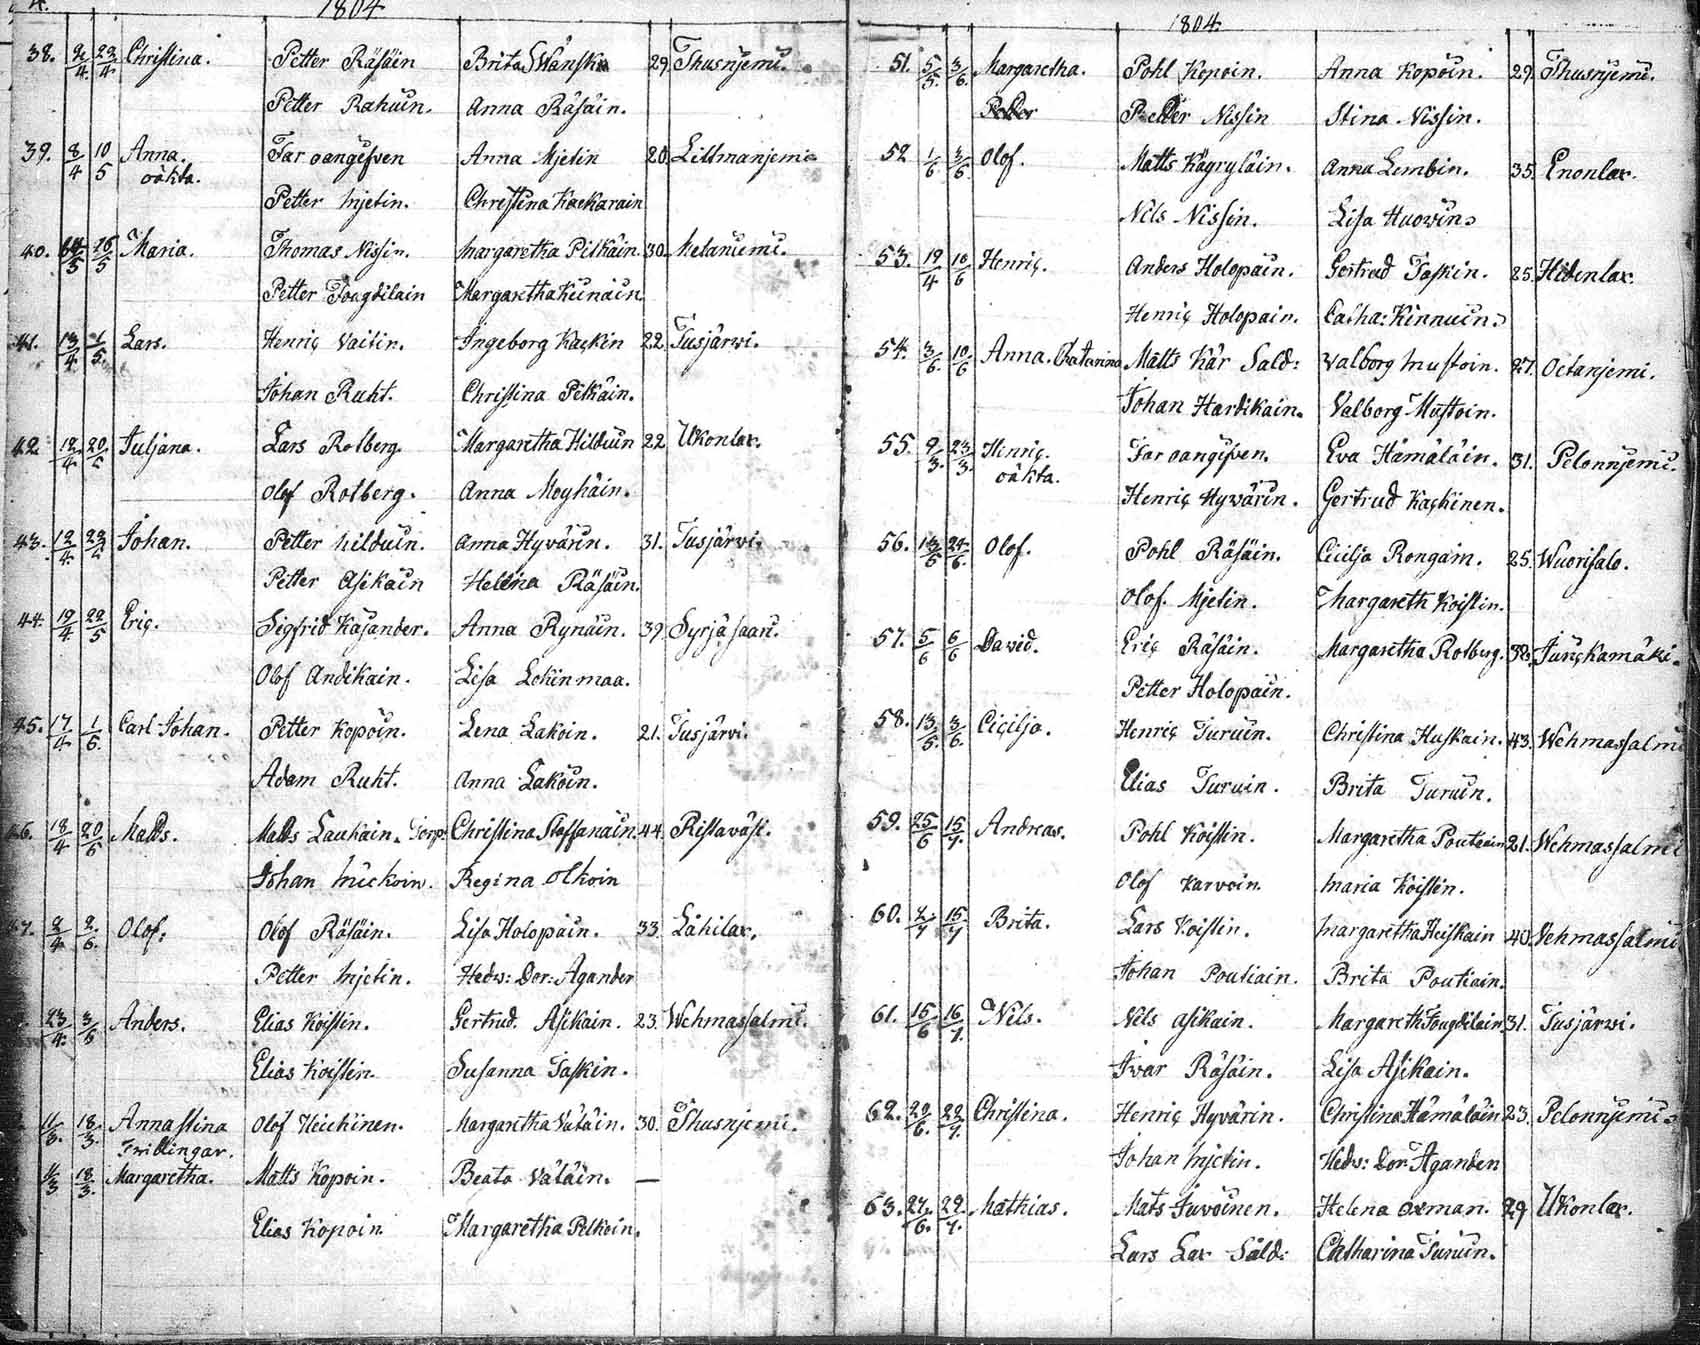 1804
38. 2/4 23/4 Christina. Petter Räsäin Brita Swansk 29 Thusnjemi.
Petter Rahuin. Anna Räsäin.
39. 8/4 10/5 Anna. Far oangifven Anna Mjetin 20. Litmanjemi
oäkta.
Petter Mjetin. Christina Kackarain
40. 26/5 Maria. Thomas Nissin. Margaretha Pitkäin. 30. Metaniemi.
Petter Fougdilain Margaretha Keinäin
41. 13/4 1/5 Lars. Henric Vaitin. Ingeborg Kackin 22 Tusjärwi.
Johan Ruht. Christina Pitkäin.
42. 12/4 20/5 Juljana. Lars Rotberg. Margaretha Hilduin 22 Ukonlax.
Olof Rotberg. Anna Moyhäin.
43. 12/4 Johan. Petter Hilduin. Anna Hyvärin. 31. Tusjärvi.
Petter Asikain Helena Räsäin.
44. 19/4 22/5 Eric. Sigfrid Kajander. Anna Rynäin. 39. Syrjäsaari.
Olof Andikain. Lisa Lehinmaa.
45. 17/4 1/6 Carl Johan. Petter Kopoin. Lena Lakoin. 21. Tusjärvi.
Adam Ruht. Anna Lakoin.
46. 18/4 20/6 Matts. Matts Laukain. Torp: Christina Staffanain. 44. Ristaväsi.
Johan Mickoin. Regina Olkoin
47. 2/4 2/6 Olof. Olof Räsäin. Lisa Holopain. 33. Lähilax.
Petter Mjetin. Hedv: Dor: Agander
23/4 3/6 Anders. Elias Koistin. Gertrud Asikain. 23. Wehmassalmi.
Elias Koistin. Susanna Taskin.
11/3 18/3 Anna Stina Olof Heickinen. Margaretha Vätäin. 30. Thusnjemi.
Tvillingar.
11/3 18/3 Margaretha. Matts Kopoin. Beata Vätäin. —
Elias Kopoin Margaretha Pelkoin.
1804
51. 5/5 3/6 Margaretha. Pohl Kopoin. Anna Kopoin. 29. Thusnjemi.
Petter Petter Nissin Stina Nissin.
52 1/6 3/6 Olof. Matts Kägryläin. Anna Lembin. 35. Enonlax.
Nils Nissin. Lisa Huovin.
53. 19/4 10/6 Henric. Anders Holopain. Gertrud Taskin. 25. Hidenlax.
Henric Holopain. Catha: Kinnuin.
54. 3/6 10/6 Anna Chatarina Matts Kär Sald: Valborg Mustoin. 27. Oetanjemi.
Johan Hardikain. Valborg Mustoin.
55. 9/3 23/3 Henric. Far oangifven. Eva Hämäläin. 31. Pelonnjemi.
oäkta.
Henric Hyvärin. Gertrud Kackinen.
56. 13/5 24/6 Olof. Pohl Räsäin. Cicilja Rongain. 25. Wuorisalo.
Olof. Mjetin. Margareth Koistin.
57. 5/6 6/6 David. Eric Räsäin. Margaretha Rotberg. 32. Jurickamäki.
Petter Holopain.
58. 13/5 3/6 Cicilja. Henric Turuin. Christina Huskain. 43. Wehmassalmi
Elias Turuin. Brita Turuin.
59. 25/6 15/7 Andreas. Pohl Koistin. Margaretha Poutiain 21. Wehmassalmi
Olof Karvoin. Maria Koistin.
60. 2/7 15/7 Brita. Lars Koistin. Margaretha Heiskain 40. Vehmassalmi
Johan Poutiain. Brita Poutiain.
61. 15/6 16/7 Nils. Nils Asikain. Margareth Fougdilain. 31. Tusjärwi.
Ivar Räsäin. Lisa Asikain.
62. 20/6 22/7 Christina. Henric Hyvärin. Christina Hämäläin 23. Pelonnjemi.
Johan Mjetin. Hedv: Dor: Agander
63. 27/6 29/7 Mathias. Mats Juvoinen. Helena Oxman. 29 Ukonlax.
Lars Lax Sald: Chatharina Turuin.